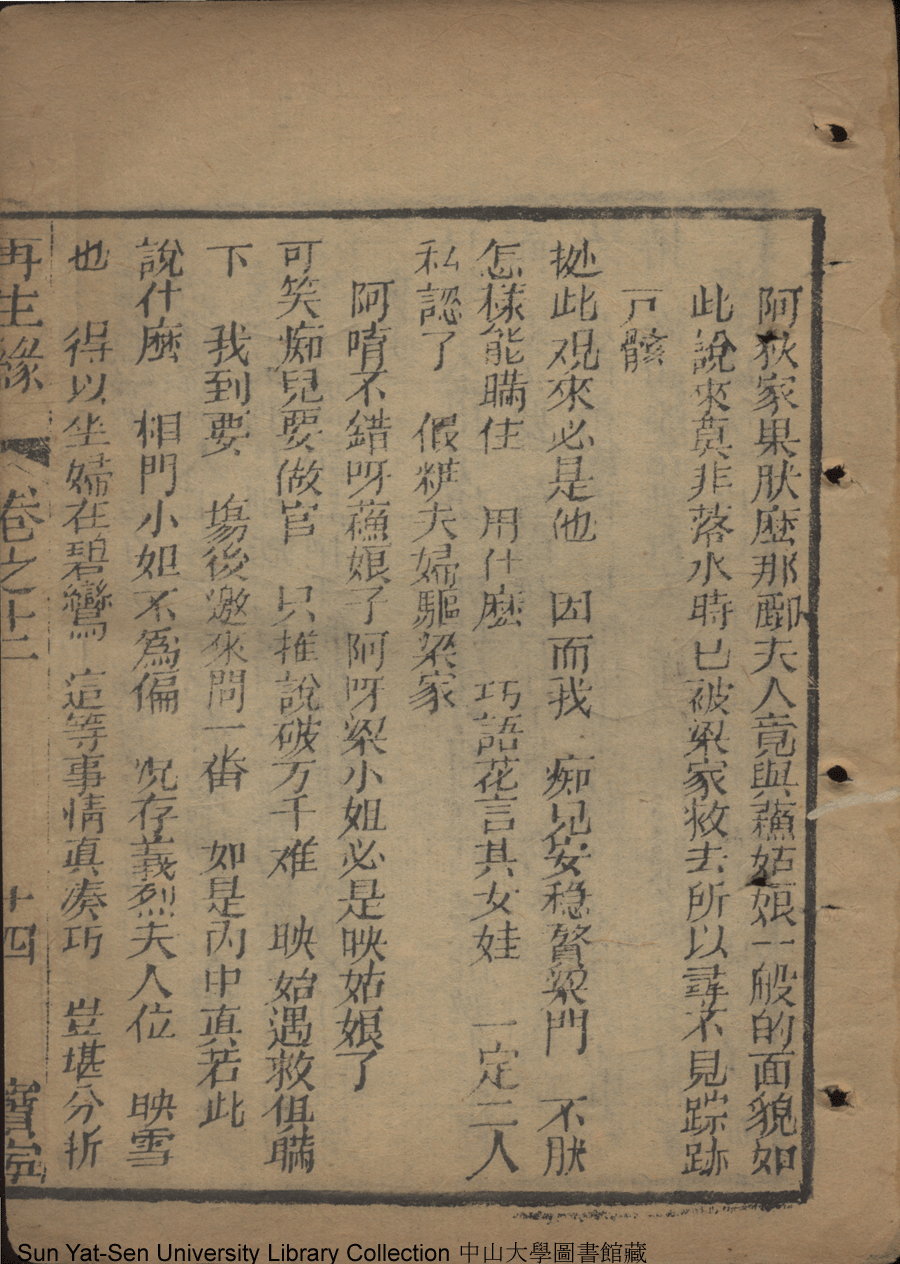 阿狄家果肰麽那酈夫人竟與蘓姑娘一般的面貌如
此說來莫非落水時已被梁家救去所以尋不見踪跡
尸骸
拠此观來必是他　因而我　痴兒安穏贅梁門　不肰
怎樣能瞞住　用什麽　巧語花言其女娃　一定二人
私認了　假粧夫婦驅梁家
阿唷不錯呀蘓娘子阿呀梁小姐必是映姑娘了
可笑痴兒要做官　只推說破万千难　映始遇救俱瞞
下　我到要　塲後邀來問一畨　如是內中真若此
說什麽　相門小姐不爲偏　况存義烈夫人位　映雪
也　得以坐婦在碧鸞　這等事情真凑巧　豈堪分折
再生緣　卷之十二　十四　寶寧
Sun Yat-Sen University Library Collection 中山大學圖書館藏